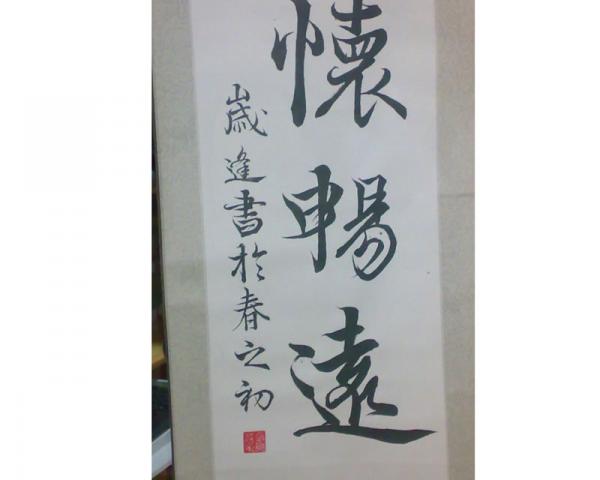 懷暢遠
歲逢書於春之初